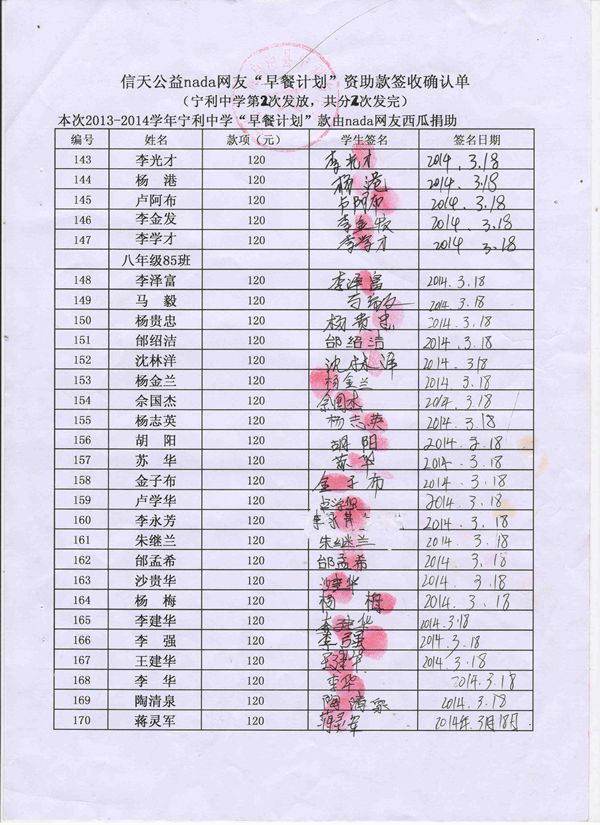 信天公益nada网友“早餐计划”资助款签收确认单
（宁利中学第2次发放，共分2次发完）
本次2013-2014学年宁利中学“早餐计划”款由nada网友西瓜捐助
编号 姓名 款项（元） 学生签名 签名日期
143 李光才 120 李光才 2014.3.18
144 杨 港 120 杨港 2014.3.18
145 卢阿布 120 卢阿布 2014.3.18
146 李金发 120 李金发 2014.3.18
147 李学才 120 李学才 2014 3.18
八年级85班
148 李泽富 120 李泽富 2014.3.18
149 马 毅 120 2014.3.18
150 杨贵忠 120 杨贵忠 2014.3.18
151 邰绍洁 120 邰绍洁 2014.3.18
152 沈林洋 120 沈林洋 2014.3.18
153 杨金兰 120 杨金兰 2014.3.18
154 佘国杰 120 佘国杰 2014.3.18
155 杨志英 120 杨志英 2014.3.18
156 胡 阳 120 胡阳 2014.3.18
157 苏 华 120 苏华 2014.3.18
158 金子布 120 金子布 2014.3.18
159 卢学华 120 卢学华 2014.3.18
160 李永芳 120 李永芳 2014.3.18
161 朱继兰 120 朱继兰 2014.3.18
162 邰孟希 120 邰孟希 2014.3.18
163 沙贵华 120 沙贵华 2014.3.18
164 杨 梅 120 杨 梅 2014.3.18
165 李建华 120 李建华 2014.3.18
166 李 强 120 李强 2014.3.18
167 王建华 120 王建华 2014.3.18
168 李 华 120 李华 2014.3.18
169 陶清泉 120 陶清泉 2014.3.18
170 蒋灵军 120 蒋灵军 2014年3月18日